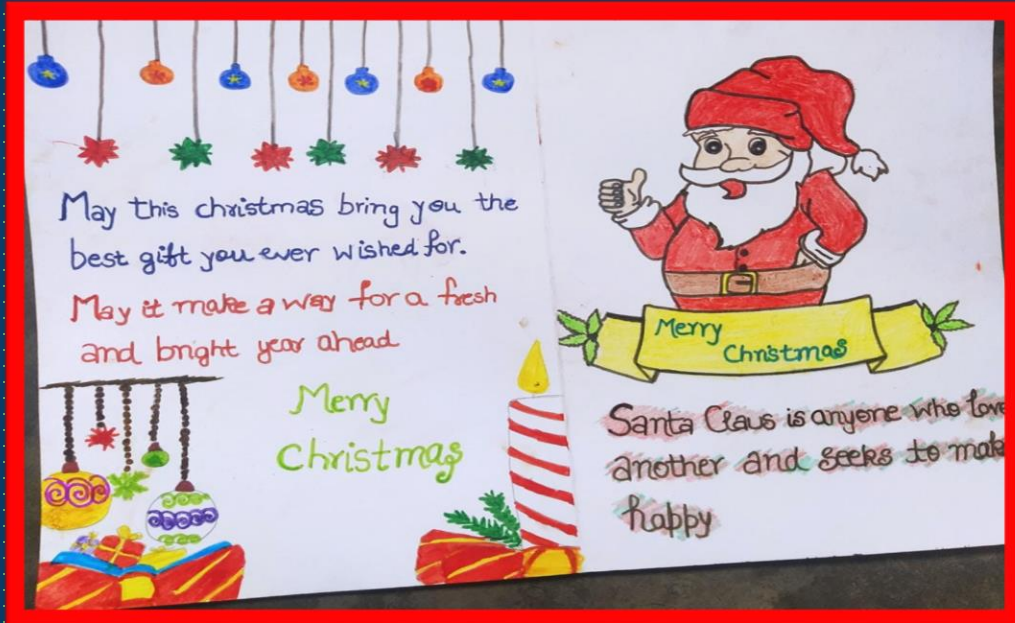 May this christmas bring you the
best gift you ever wished for.
May it make a way for a fresh
and bright year ahead
Merry
Christmas
Merry
Christmas
Santa Claus is anyone who love
another and seeks to mak
happy